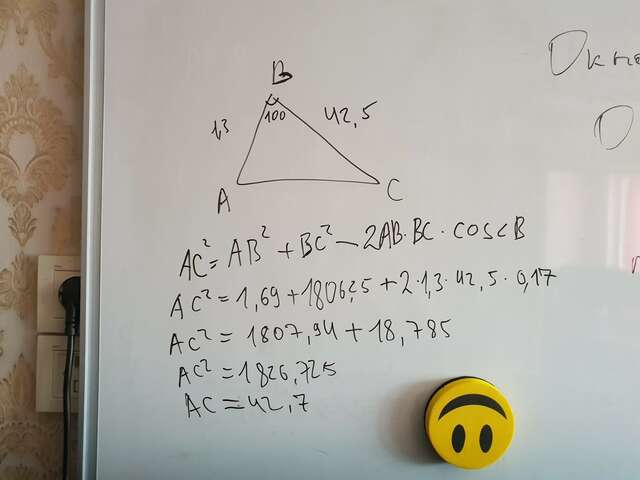 B
100
1,3
42,5
A
C
AC² = AB² + BC² - 2AB·BC·cos∠B
AC² = 1,69 + 1806,25 + 2·1,3·42,5·0,17
AC² = 1807,94 + 18,785
AC² = 1826,725
AC = 42,7